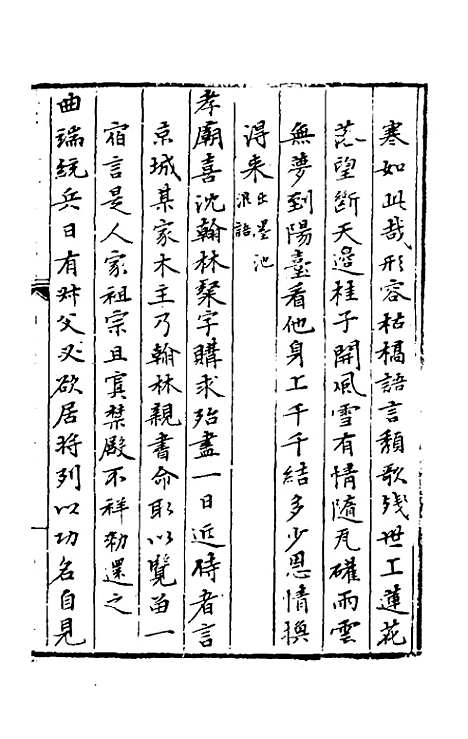 寒如此哉形容枯槁語言頹歌殘世工蓮花
落望斷天邊桂子開風雪有情隨瓦礶雨雲
無夢到陽臺看他身上千千結多少恩情換
得来出墨池浪語
孝廟喜沈翰林粲字購求殆盡一日近侍者言
京城某家木主乃翰林親書命取以覽畱一
宿言是人家祖宗且寘禁殿不祥勑還之
曲端統兵日有叔父又欲居将列以功名自見